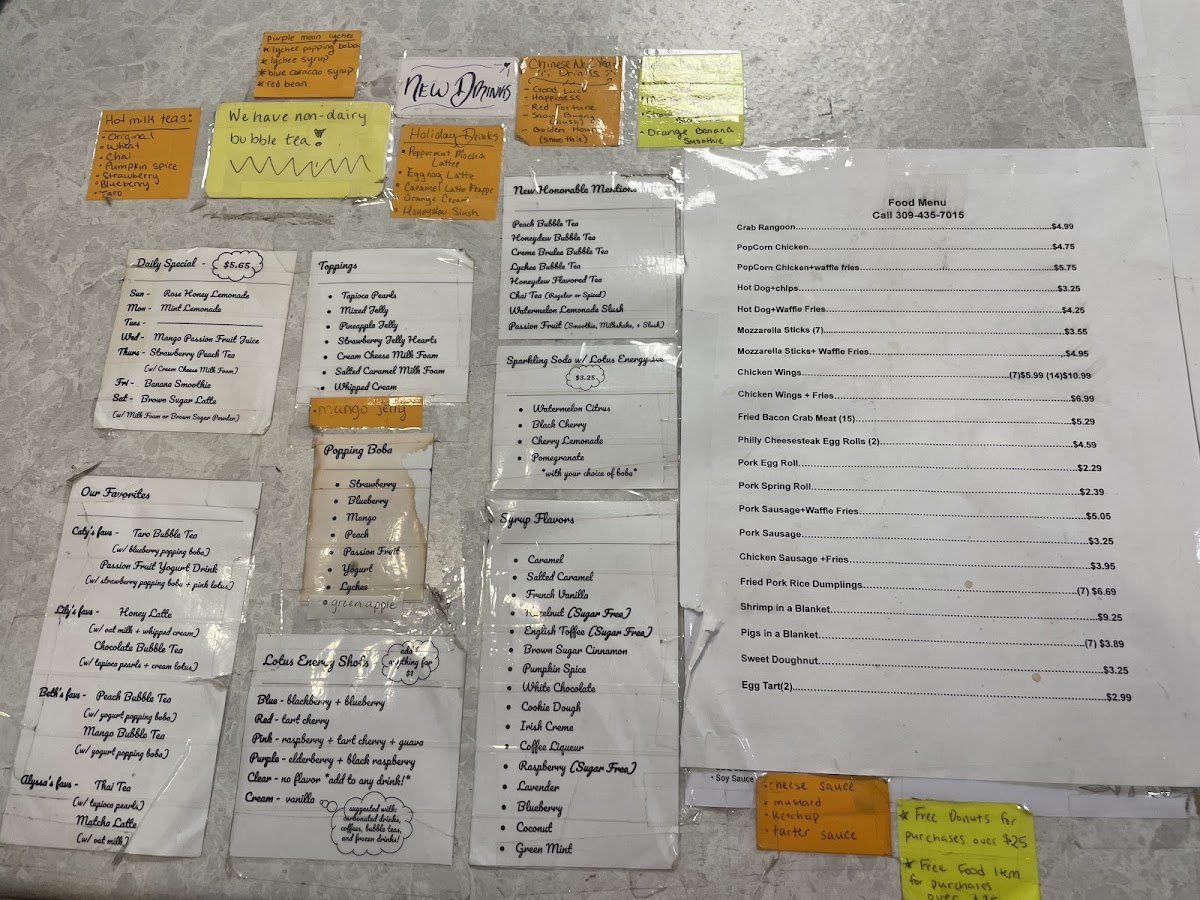 purple moon lychee
* lychee popping boba
* lychee syrup
* blue caracao syrup
* red bean
Hot milk teas:
- Original
- Wheat
- Chai
- Pumpkin spice
- Strawberry
- Blueberry
- Taro
We have non-dairy
bubble tea!
NEW DRINKS
Holiday Drinks
• Peppermint Mocha
Latte
• Eggnog Latte
• Caramel Latte Frappe
Orange Cream
• Honeydew Slush
Chinese New Year
Drinks
- Good Luck
- Happiness
- Red Fortune
- Snow Bunny
(slush)
- Golden Hour
(smoothie)
- Orange Banana
Smoothie
Daily Special - $5.65
Sun - Rose Honey Lemonade
Mon - Mint Lemonade
Tues -
Wed - Mango Passion Fruit Juice
Thurs - Strawberry Peach Tea
(w/ Cream Cheese Milk Foam)
Fri - Banana Smoothie
Sat - Brown Sugar Latte
(w/ Milk Foam or Brown Sugar Powder)
Toppings
• Tapioca Pearls
• Mixed Jelly
• Pineapple Jelly
• Strawberry Jelly Hearts
• Cream Cheese Milk Foam
• Salted Caramel Milk Foam
• Whipped Cream
• mango jelly
Popping Boba
• Strawberry
• Blueberry
• Mango
• Peach
• Passion Fruit
• Yogurt
• Lychee
• green apple
Our Favorites
Caty's favs - Taro Bubble Tea
(w/ blueberry popping boba)
Passion Fruit Yogurt Drink
(w/ strawberry popping boba + pink lotus)
Lily's favs - Honey Latte
(w/ oat milk + whipped cream)
Chocolate Bubble Tea
(w/ tapioca pearls + cream lotus)
Beth's favs - Peach Bubble Tea
(w/ yogurt popping boba)
Mango Bubble Tea
(w/ yogurt popping boba)
Alyssa's favs - Thai Tea
(w/ tapioca pearls)
Matcha Latte
(w/ oat milk)
Lotus Energy Shots
add to anything for
$1
Blue - blackberry + blueberry
Red - tart cherry
Pink - raspberry + tart cherry + guava
Purple - elderberry + black raspberry
Clear - no flavor *add to any drink!*
Cream - vanilla
suggested with:
carbonated drinks,
coffees, bubble teas,
and frozen drinks!
New Honorable Mentions
Peach Bubble Tea
Honeydew Bubble Tea
Creme Brulee Bubble Tea
Lychee Bubble Tea
Honeydew Flavored Tea
Chai Tea (Regular or Spiced)
Watermelon Lemonade Slush
Passion Fruit (Smoothie, Milkshake, + Slush)
Sparkling Soda w/ Lotus Energy
$3.25
• Watermelon Citrus
• Black Cherry
• Cherry Lemonade
• Pomegranate
*with your choice of boba*
Syrup Flavors
• Caramel
• Salted Caramel
• French Vanilla
• Hazelnut (Sugar Free)
• English Toffee (Sugar Free)
• Brown Sugar Cinnamon
• Pumpkin Spice
• White Chocolate
• Cookie Dough
• Irish Creme
• Coffee Liqueur
• Raspberry (Sugar Free)
• Lavender
• Blueberry
• Coconut
• Green Mint
Food Menu
Call 309-435-7015
Crab Rangoon $4.99
PopCorn Chicken $4.75
PopCorn Chicken+waffle fries $5.75
Hot Dog+chips $3.25
Hot Dog+Waffle Fries $4.25
Mozzarella Sticks (7) $3.55
Mozzarella Sticks+ Waffle Fries $4.95
Chicken Wings (7)$5.99 (14)$10.99
Chicken Wings + Fries $6.99
Fried Bacon Crab Meat (15) $5.29
Philly Cheesesteak Egg Rolls (2) $4.59
Pork Egg Roll $2.29
Pork Spring Roll $2.39
Pork Sausage+Waffle Fries $5.05
Pork Sausage $3.25
Chicken Sausage +Fries $3.95
Fried Pork Rice Dumplings (7) $6.69
Shrimp in a Blanket $9.25
Pigs in a Blanket (7) $3.89
Sweet Doughnut $3.25
Egg Tart(2) $2.99
• Soy Sauce
• cheese sauce
• mustard
• Ketchup
• tarter sauce
* Free Donuts for
purchases over $25
* Free Food Item
for purchases
over